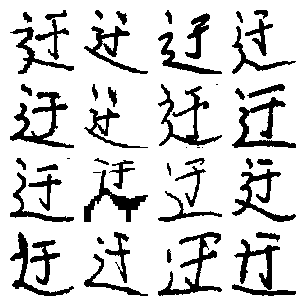 迂迂迂迂
迂迂迂迂
迂迂迂迂
迂迂迂迂